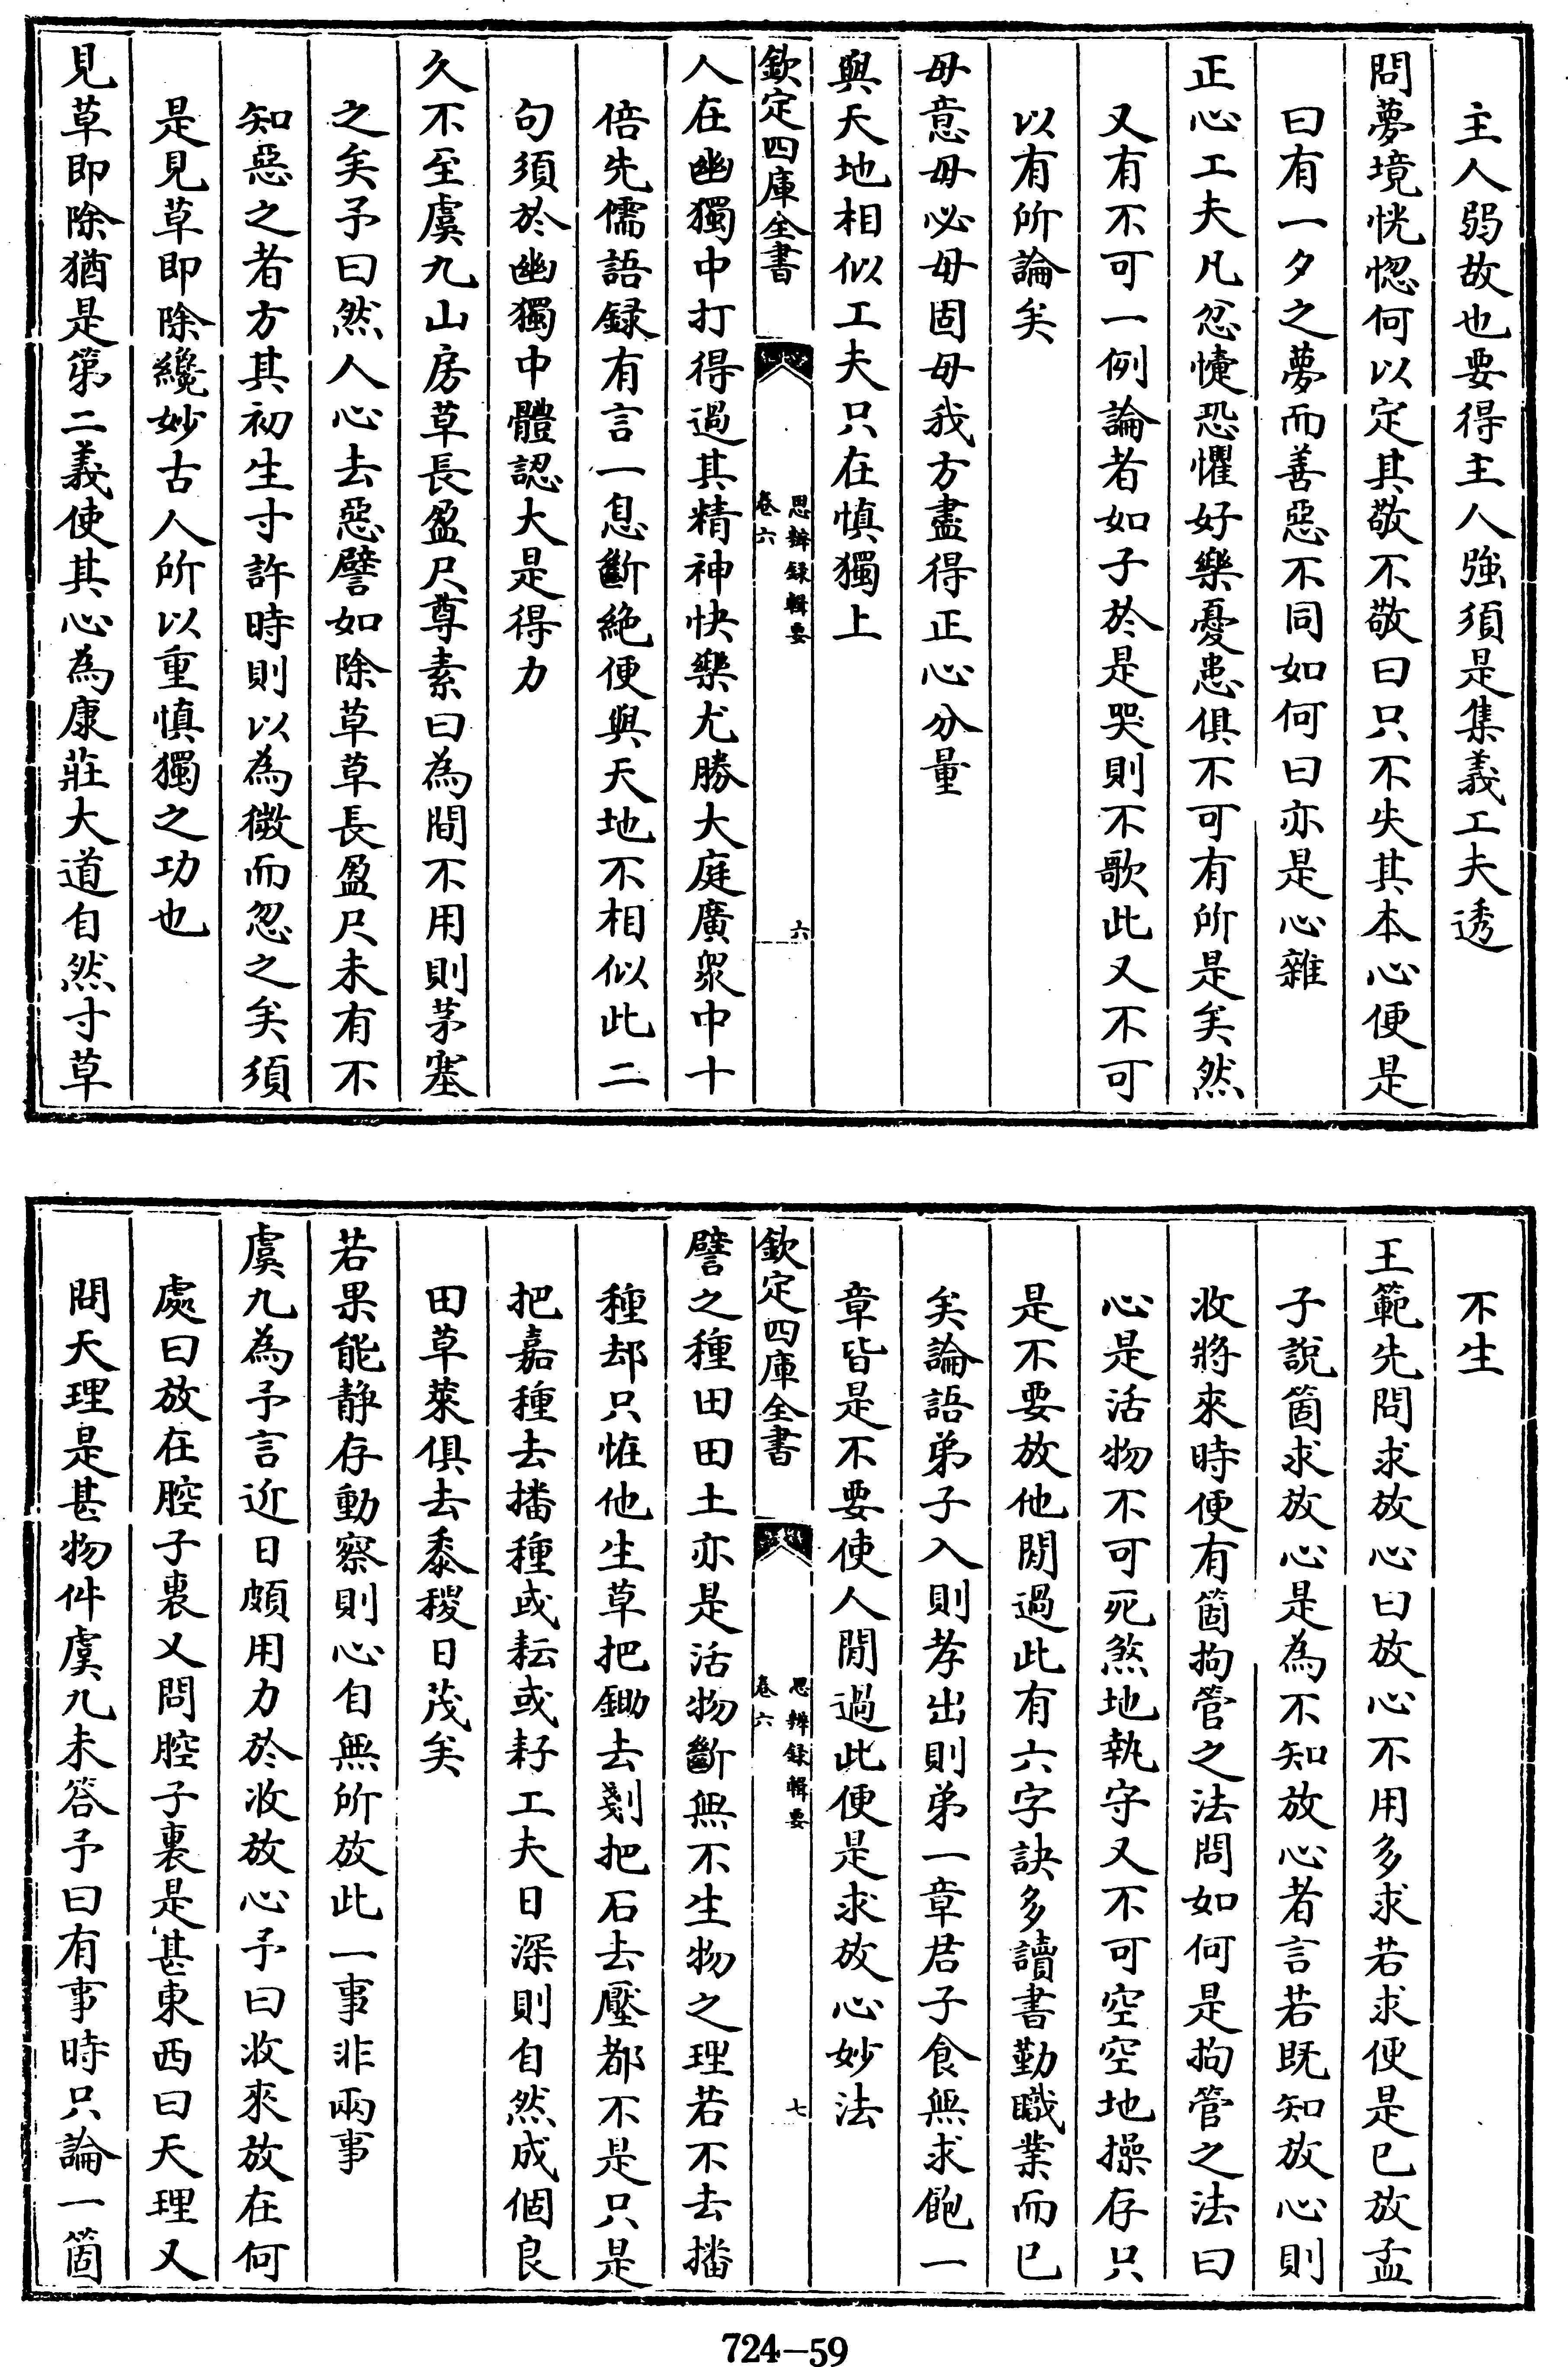 主人弱故也要得主人強須是集義工夫透
問夢境恍惚何以定其敬不敬曰只不失其本心便是
曰有一夕之夢而善惡不同如何曰亦是心雜
正心工夫凡忿懥恐懼好樂憂患俱不可有所是矣然
又有不可一例論者如子於是哭則不歌此又不可
以有所論矣
毋意毋必毋固毋我方盡得正心分量
與天地相似工夫只在慎獨上
欽定四庫全書
思辨録輯要
卷六
六
人在幽獨中打得過其精神快樂尤勝大庭廣衆中十
倍先儒語録有言一息斷絶便與天地不相似此二
句須於幽獨中體認大是得力
久不至虞九山房草長盈尺尊素曰為間不用則茅塞
之矣予曰然人心去惡譬如除草草長盈尺未有不
知惡之者方其初生寸許時則以為微而忽之矣須
是見草即除纔妙古人所以重慎獨之功也
見草即除猶是第二義使其心為康莊大道自然寸草
不生
王範先問求放心曰放心不用多求若求便是已放孟
子說箇求放心是為不知放心者言若既知放心則
收將來時便有箇拘管之法問如何是拘管之法曰
心是活物不可死煞地執守又不可空空地操存只
是不要放他閒過此有六字訣多讀書勤職業而已
矣論語弟子入則孝出則弟一章君子食無求飽一
章皆是不要使人閒過此便是求放心妙法
欽定四庫全書
思辨録輯要
卷六
七
譬之種田田土亦是活物斷無不生物之理若不去播
種却只恠他生草把鋤去剗把石去壓都不是只是
把嘉種去播種或耘或耔工夫日深則自然成個良
田草萊俱去黍稷日茂矣
若果能静存動察則心自無所放此一事非兩事
虞九為予言近日頗用力於收放心予曰收來放在何
處曰放在腔子裏又問腔子裏是甚東西曰天理又
問天理是甚物件虞九未答予曰有事時只論一箇
724-59